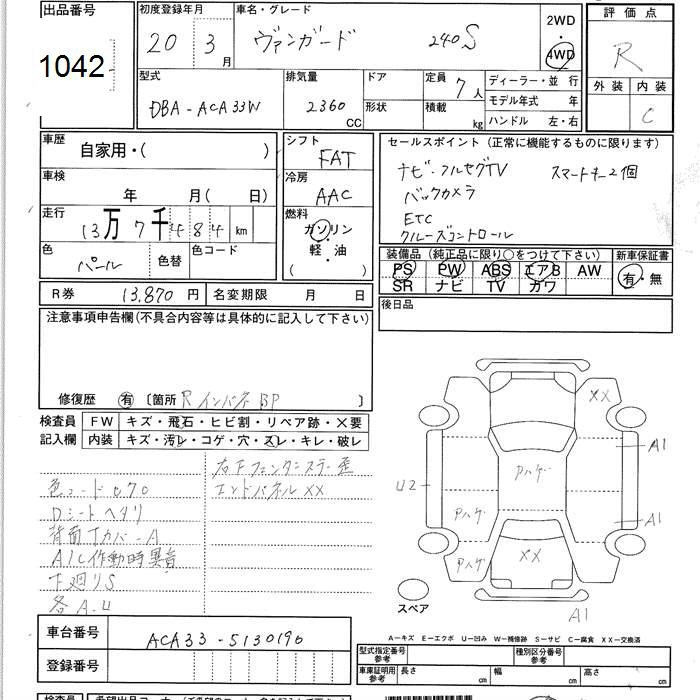 出品番号
1042
初度登録年月
20 3月
車名・グレード
ヴァンガード 240S
2WD
4WD
評価点
R
外装 内装
C
型式
DBA-ACA33W
排気量
2360 CC
ドア
形状
定員 7人
積載 kg
ディーラー・並行
モデル年式 年
ハンドル 左・右
車歴
自家用・( )
車検
年 月( 日)
走行
13万7千484km
色
パール
色替
色コード
シフト
FAT
冷房
AAC
燃料
ガソリン
軽・油
( )
セールスポイント(正常に機能するものに限ります)
ナビ・フルセグTV スマートキー2個
バックカメラ
ETC
クルーズコントロール
装備品(純正品に限り○をつけて下さい)
PS PW ABS エアB AW
SR ナビ TV カワ
新車保証書
有・無
R券 13,870円
名変期限 月 日
後日品
注意事項申告欄(不具合内容等は具体的に記入して下さい)
修復歴 有 〔箇所 RインパネBP 〕
検査員
記入欄
FW キズ・飛石・ヒビ割・リペア跡・×要
内装 キズ・汚レ・コゲ・穴・スレ・キレ・破レ
色コード070
Dシートヘタリ
背面TカバーA
A/C作動時異音
下廻りS
各A.U
エンドパネルXX
XX
A1
U2
Pハゲ
Pハゲ
A1
Pハゲ
XX
A1
スペア
A−キズ E−エクボ U−凹み W−補修跡 S−サビ C−腐食 XX−交換済
車台番号 ACA33-5130190
登録番号
型式指定番号
参考
種別区分番号
参考
車庫証明用
参考
長さ cm
幅 cm
高さ cm